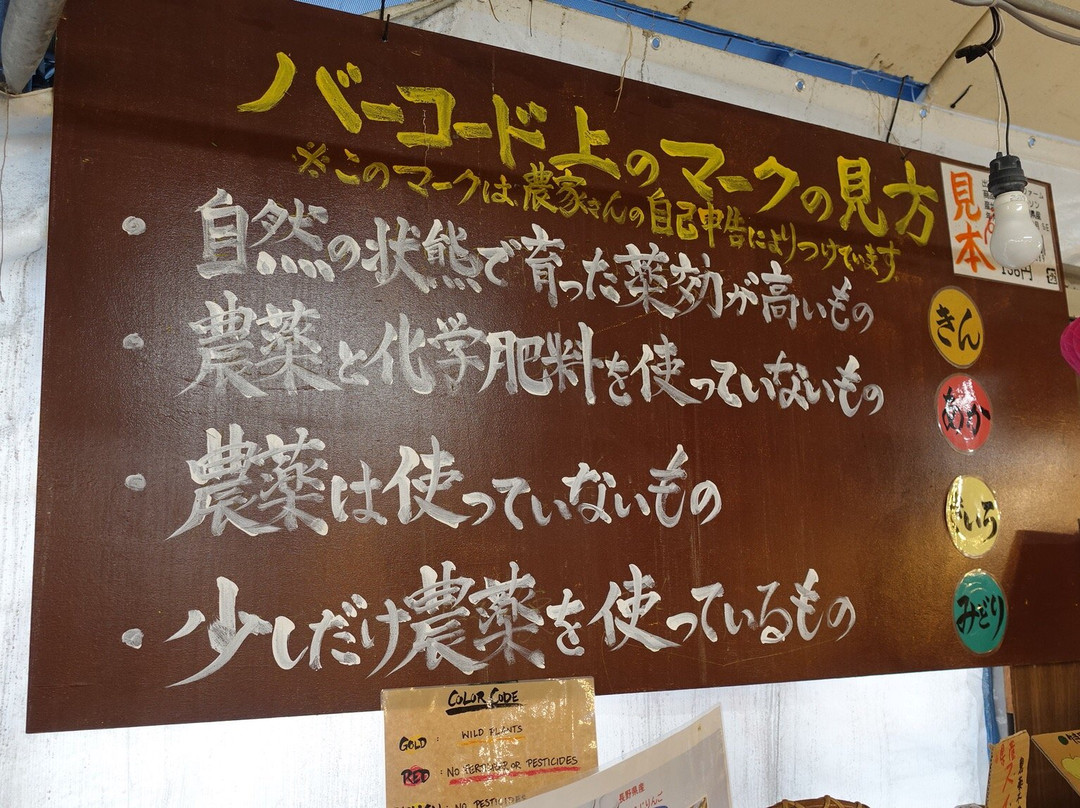 バーコード上のマークの見方
※このマークは、農家さんの自己申告によりつけています
・自然の状態で育った薬効が高いもの
きん
・農薬と化学肥料を使っていないもの
あか
・農薬は使っていないもの
きいろ
・少しだけ農薬を使っているもの
みどり
見本
COLOR CODE
GOLD : WILD PLANTS
RED : NO FERTILIZER OR PESTICIDES
NO PESTICIDES
長野県産